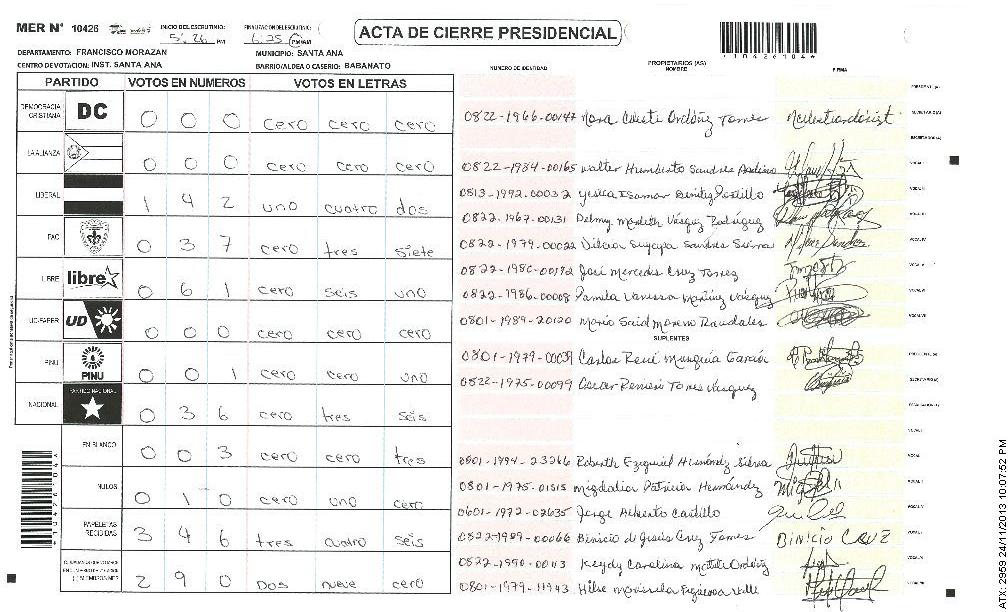 MER N° 10426 INICIO DEL ESCRUTINIO: 5:26 PM FINALIZACION DEL ESCRUTINIO: 6:25 PM/AM
ACTA DE CIERRE PRESIDENCIAL
*10426104*
DEPARTAMENTO: FRANCISCO MORAZAN MUNICIPIO: SANTA ANA
CENTRO DE VOTACION: INST. SANTA ANA BARRIO/ALDEA O CASERIO: BABANATO
PARTIDO VOTOS EN NUMEROS VOTOS EN LETRAS
DEMOCRACIA CRISTIANA DC 0 0 0 cero cero cero
LA ALIANZA 0 0 0 cero cero cero
LIBERAL 1 4 2 uno cuatro dos
PAC 0 3 7 cero tres siete
LIBRE libre 0 6 1 cero seis uno
UD-FAPER UD 0 0 0 cero cero cero
PINU PINU 0 0 1 cero cero uno
NACIONAL PARTIDO NACIONAL 0 3 6 cero tres seis
EN BLANCO 0 0 3 cero cero tres
NULOS 0 1 0 cero uno cero
PAPELETAS RECIBIDAS 3 4 6 tres cuatro seis
2 9 0 Dos nueve cero
NUMERO DE IDENTIDAD PROPIETARIOS (AS) NOMBRE FIRMA
0822-1966-00147 Tomes
0822-1984-00165 Walter Humberto Sandres
0813-1992-00032 Yesica
0822-1967-00131 Vásquez Rodríguez
0822-1979-00022 Suyapa Sandres
0822-1980-00192 José Mercedes Cruz Torrez
0822-1986-00008 Pamila Vanessa Martínez Vásquez
0801-1989-20120 Mario Said Moreno Raudales
SUPLENTES
0801-1979-00039 Carlos René Munguia García
0822-1975-00099 Oscar Torres Vásquez
0801-1994-23266 Ezequiel Hernández
0801-1975-01515 Migdalia Patricia Hernández
0601-1972-02635 Jorge Alberto Castillo
0822-1989-00066 Binicio d Jesús Cruz Torres BINICIO CRUZ
0822-1990-00113 Keydy Carolina
0801-1979-11943 Figueroa Valle
ATX: 2959 24/11/2013 10:07:52 PM